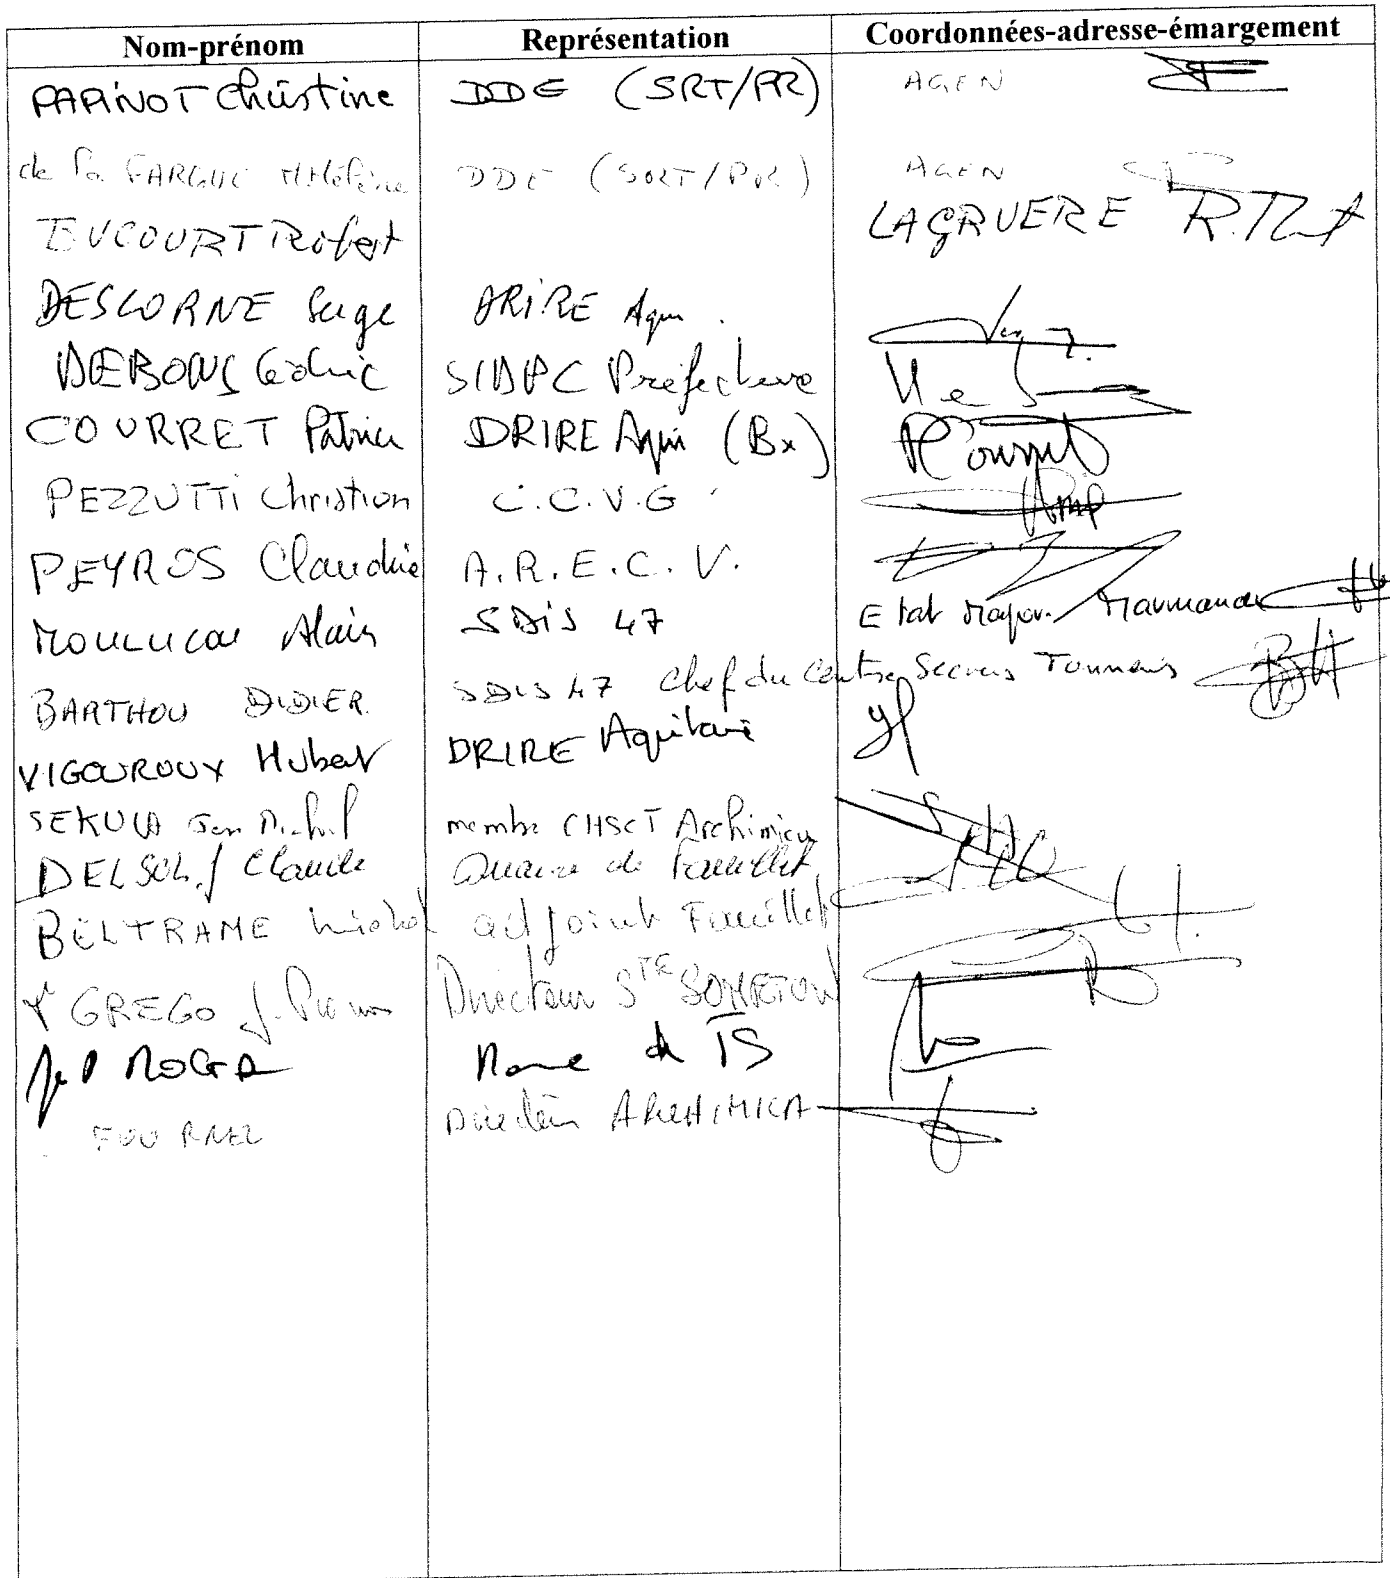 Nom-prénom Représentation Coordonnées-adresse-émargement
PAPINOT Christine DDE (SRT/PR) AGEN
de la FARGUE DDE (SRT/PR) AGEN
Robert LAGRUERE
DESCORNE Serge DRIRE Aqui.
DEBONS Cédric SIDPC Préfecture
COURRET Patrice DRIRE Aqui (Bx)
PEZZUTTI Christian C.C.V.G
PEYROS Claudie A.R.E.C.V.
Alain SDIS 47 Etat Major. Marmande
BARTHOU DIDIER. SDIS 47 chef du Centre Secours Tonneins
VIGOUROUX Hubert DRIRE Aquitaine
SEKULA Jean Michel membre CHSCT Archimica
DELSOL J Claude de Fauillet
BELTRAME Michel adjoint Fauillet
GREGO J. Directeur STE
de
FOURNEL ARCHIMICA